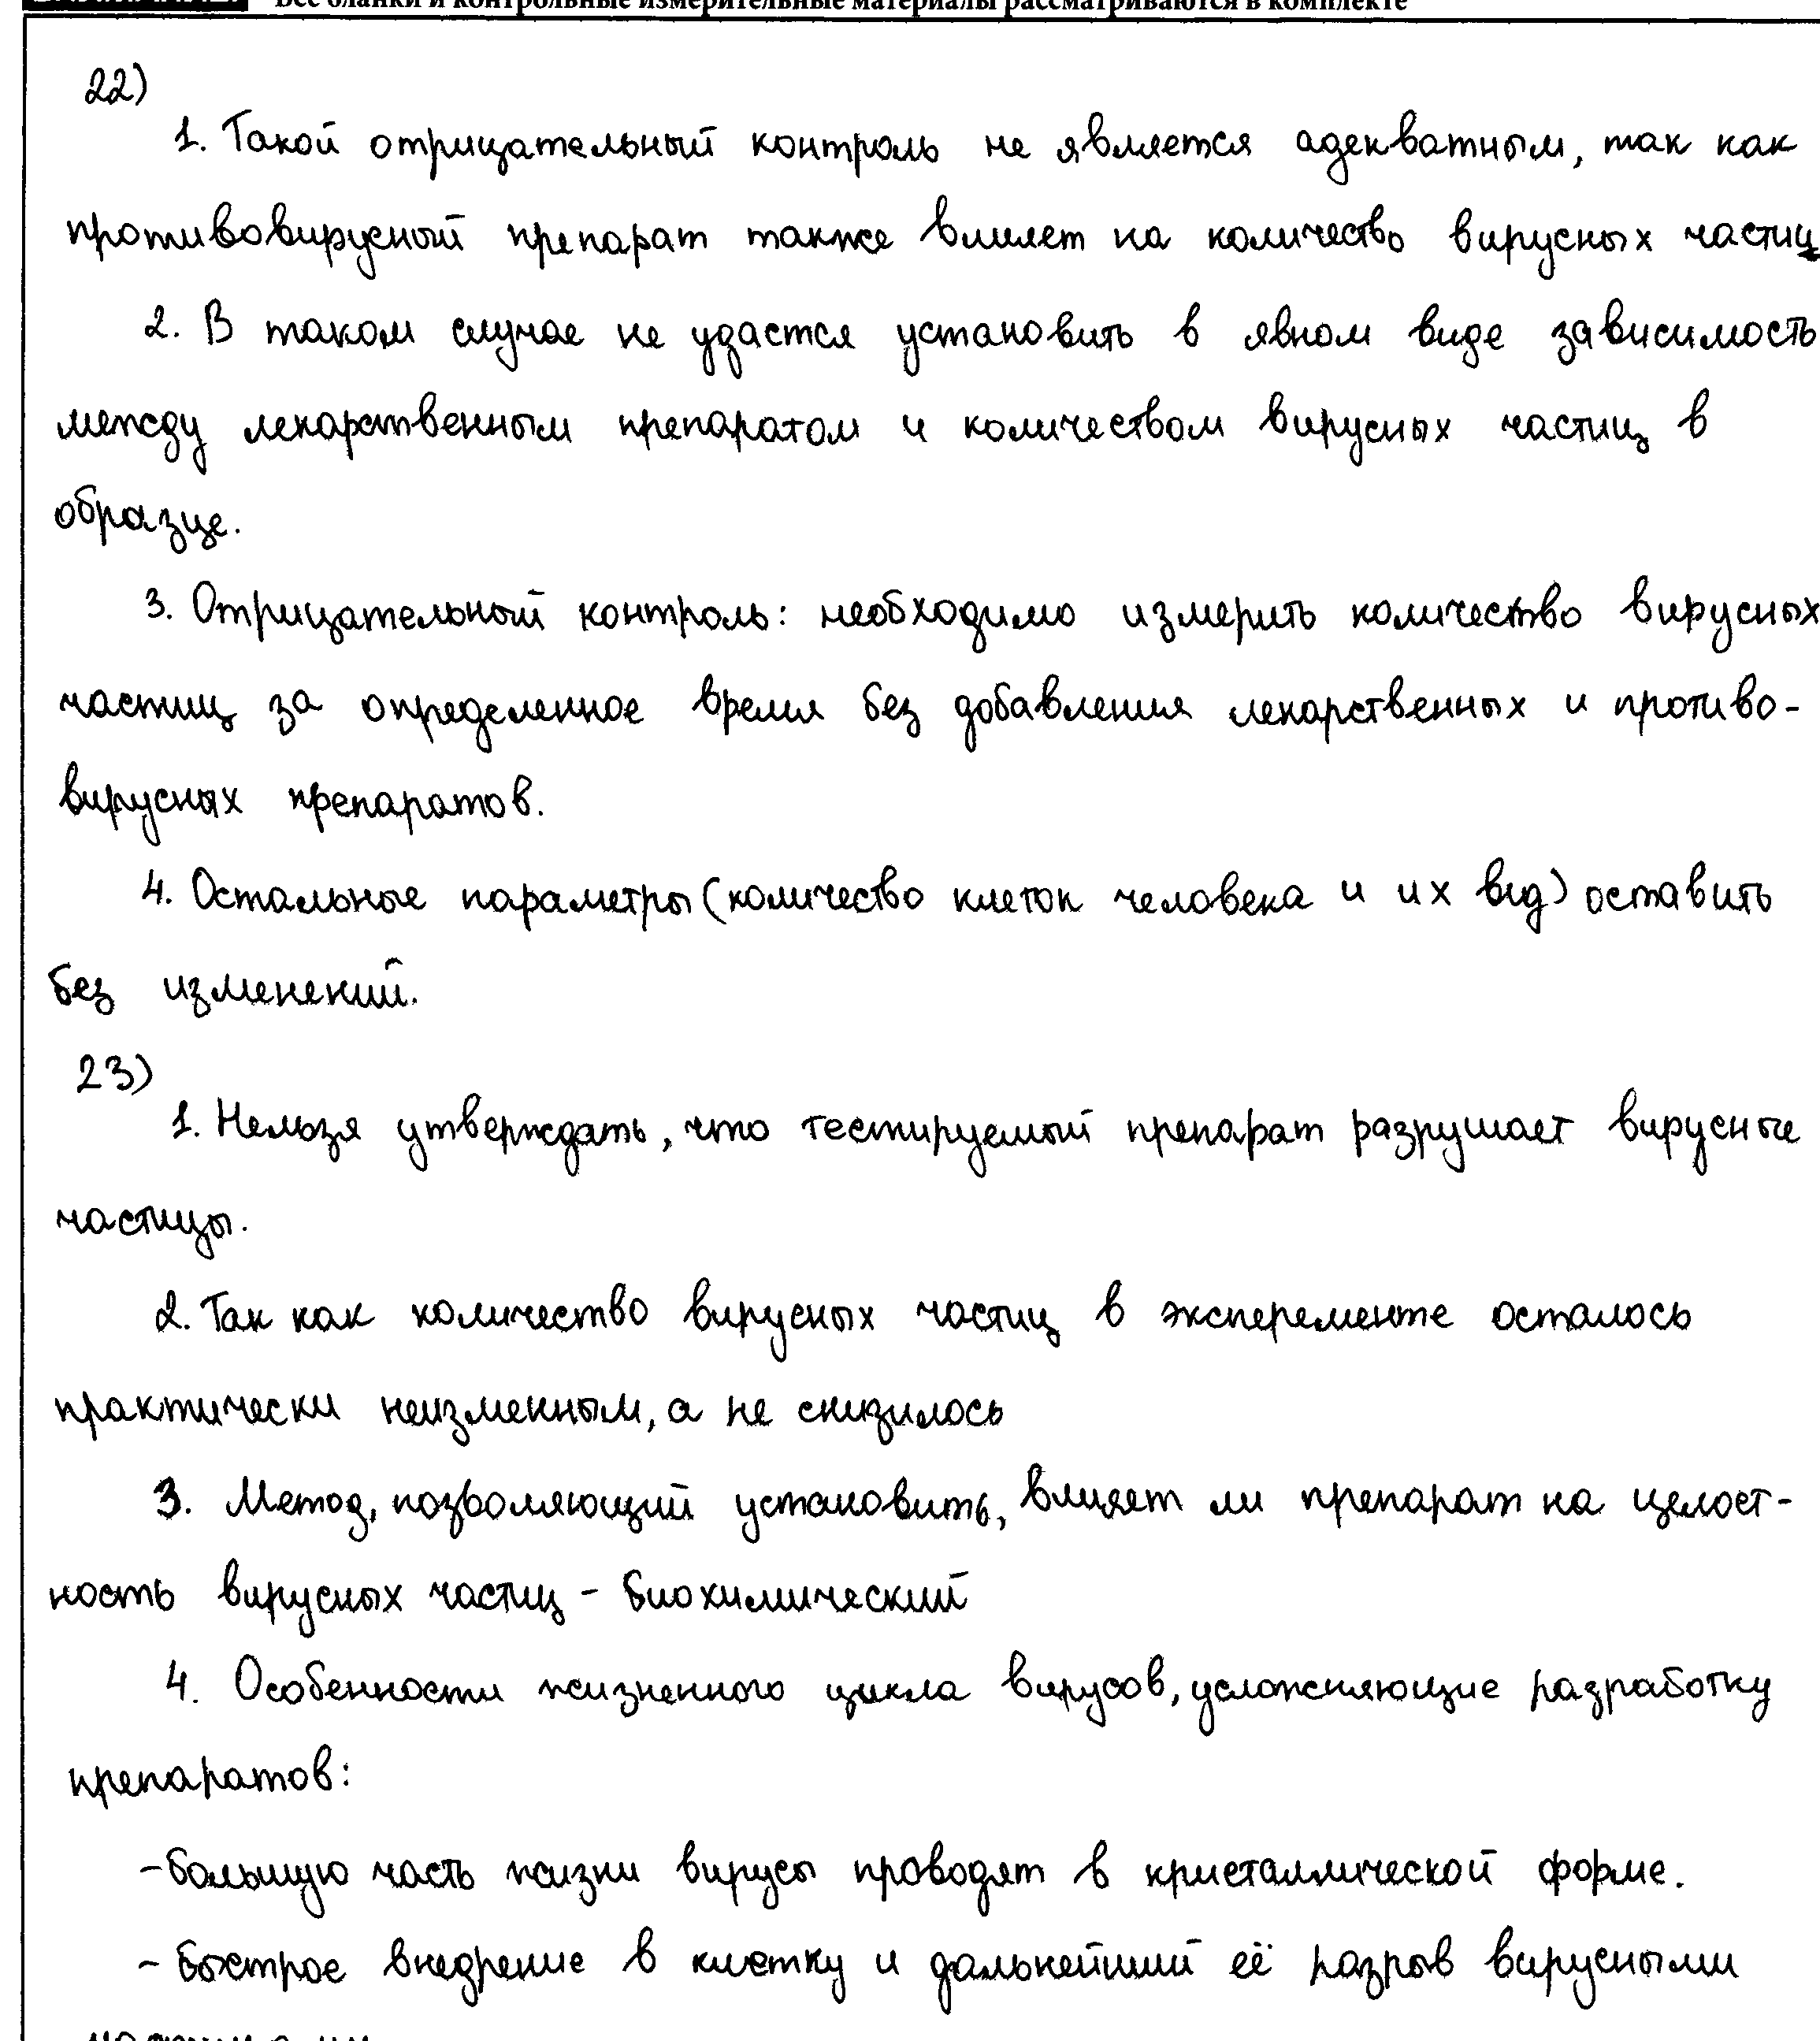 Все бланки и контрольные измерительные материалы рассматриваются в комплекте
22)
1. Такой отрицательный контроль не является адекватным, так как
противовирусный препарат также влияет на количество вирусных частиц
2. В таком случае не удастся установить в явном виде зависимость
между лекарственным препаратом и количеством вирусных частиц в
образце.
3. Отрицательный контроль: необходимо измерить количество вирусных
частиц за определенное время без добавления лекарственных и противо-
вирусных препаратов.
4. Остальные параметры (количество клеток человека и их вид) оставить
без изменений.
23)
1. Нельзя утверждать, что тестируемый препарат разрушает вирусные
частицы.
2. Так как количество вирусных частиц в эксперементе осталось
практически неизменным, а не снизилось
3. Метод, позволяющий установить, влияет ли препарат на целост-
ность вирусных частиц - биохимический
4. Особенности жизненного цикла вирусов, усложняющие разработку
препаратов:
- большую часть жизни вирусы проводят в кристаллической форме.
- быстрое внедрение в клетку и дальнейший её разрыв вирусными